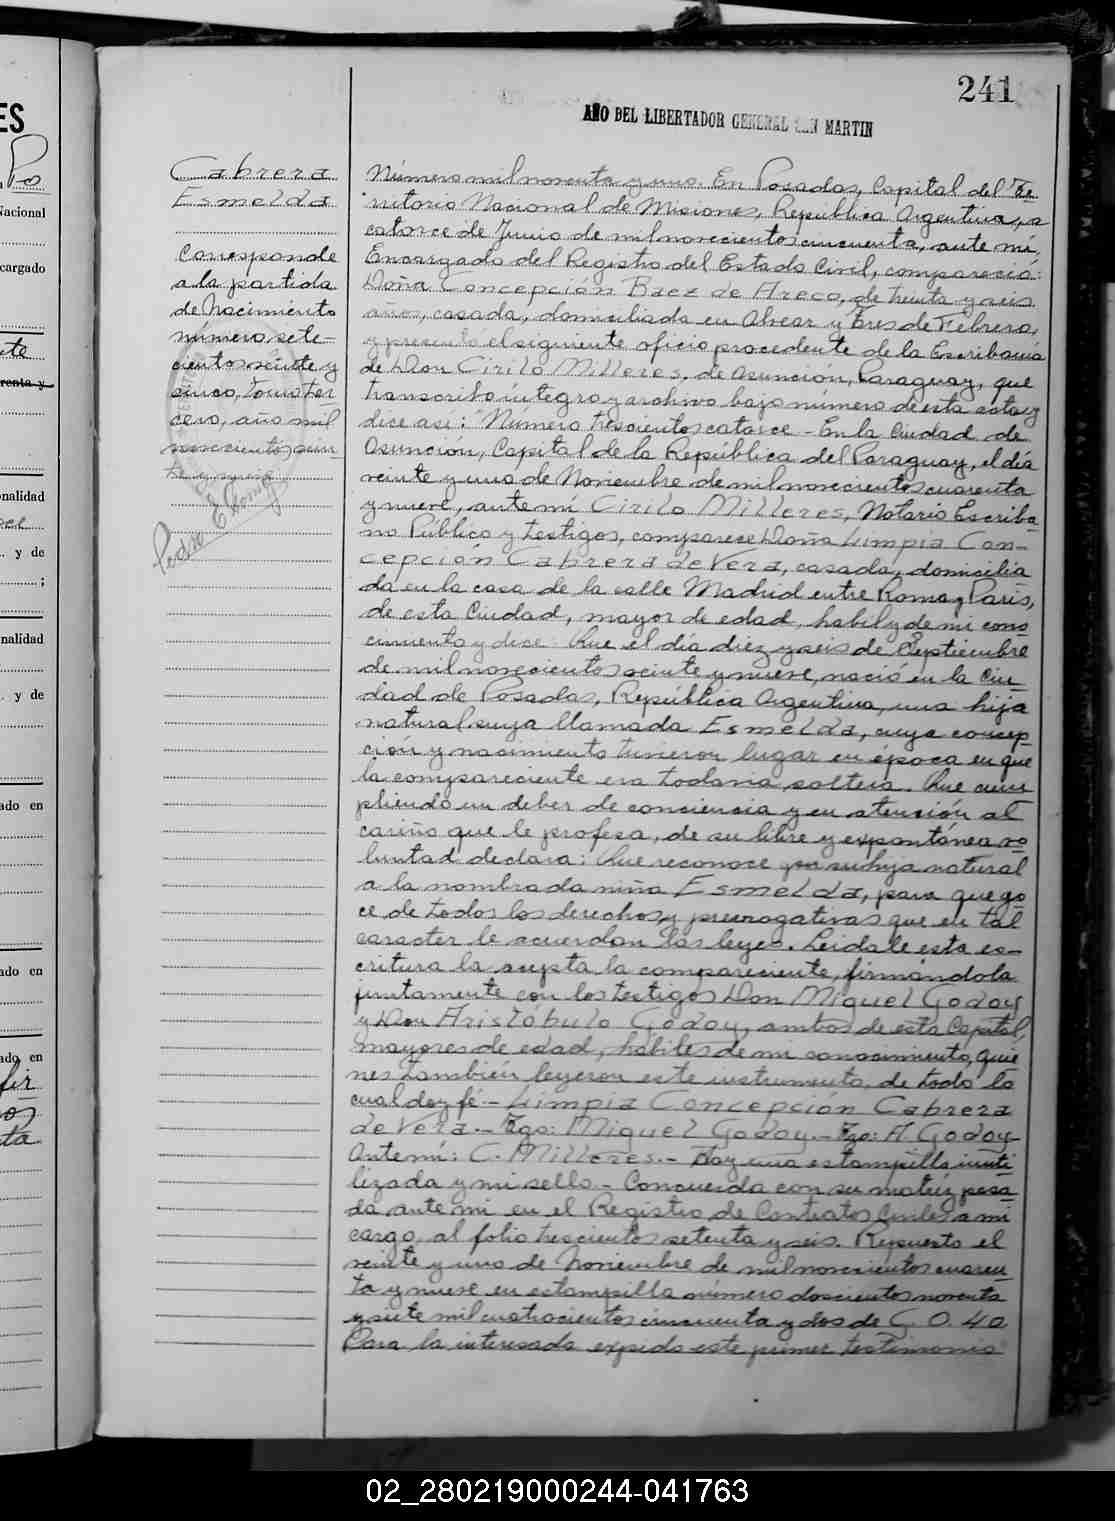 241
AÑO DEL LIBERTADOR GENERAL SAN MARTIN
ES
Po
Nacional
cargado
te
renta y
onalidad
. y de
;
nalidad
. y de
ado en
ado en
ado en
fir
os
ta
Cabrera
Esmelda
Corresponde
a la partida
de Nacimiento
número sete-
cientos veinte y
cinco, tomo ter
cero, año mil
novecientos
Número mil noventa y uno. En Posadas, Capital del Te-
rritorio Nacional de Misiones, República Argentina, a
catorce de Junio de mil novecientos cincuenta, ante mi,
Encargado del Registro del Estado Civil, compareció:
Doña Concepción Baez de Areco, de treinta y seis
años, casada, domiciliada en Alvear y Tres de Febrero,
y presentó el siguiente oficio procedente de la Escribanía
de Don Cirilo Milleres, de Asunción, Paraguay, que
transcribo íntegro y archivo bajo número de esta acta y
dice asi: "Número trescientos catorce - En la Ciudad de
Asunción, Capital de la República del Paraguay, el día
veinte y uno de Noviembre de mil novecientos cuarenta
y nueve, ante mí Cirilo Milleres, Notario Escriba-
no Público y testigos, comparece Doña Limpia Con-
cepción Cabrera de Vera, casada, domicilia
da en la casa de la calle Madrid entre Roma y Paris,
de esta Ciudad, mayor de edad, habil y de mi cono-
cimiento y dice: Que el día diez y seis de Septiembre
de mil novecientos veinte y nueve, nació en la Ciu-
dad de Posadas, República Argentina, una hija
natural suya llamada Esmelda, cuya concep-
ción y nacimiento tuvieron lugar en época en que
la compareciente era todavia soltera. Que cum
pliendo un deber de conciencia y en atención al
cariño que le profesa, de su libre y expontánea vo
luntad declara: Que reconoce por su hija natural
a la nombrada niña Esmelda, para que go-
ce de todos los derechos y prerrogativas que en tal
caracter le acuerdan las leyes. Leidale esta es-
critura la acepta la compareciente, firmándola
juntamente con los testigos Don Miguel Godoy
y Don Aristóbulo Godoy, ambos de esta Capital,
mayores de edad, habiles de mi conocimiento, quie
nes tambien leyeron este instrumento, de todo lo
cual doy fé - Limpia Concepción Cabrera
de Vera. - Tgo: Miguel Godoy. - Tgo: A. Godoy -
Ante mí: C. Milleres. - Hay una estampilla inuti
lizada y mi sello - Concuerda con su matriz pasa-
da ante mi en el Registro de Contratos Civiles a mi
cargo, al folio trescientos setenta y seis. Repuesto el
veinte y uno de Noviembre de mil novecientos cuaren-
ta y nueve en estampilla número doscientos noventa
y siete mil cuatrocientos cincuenta y dos de G. 0.40
Para la interesada expido este primer testimonio
02_280219000244-041763